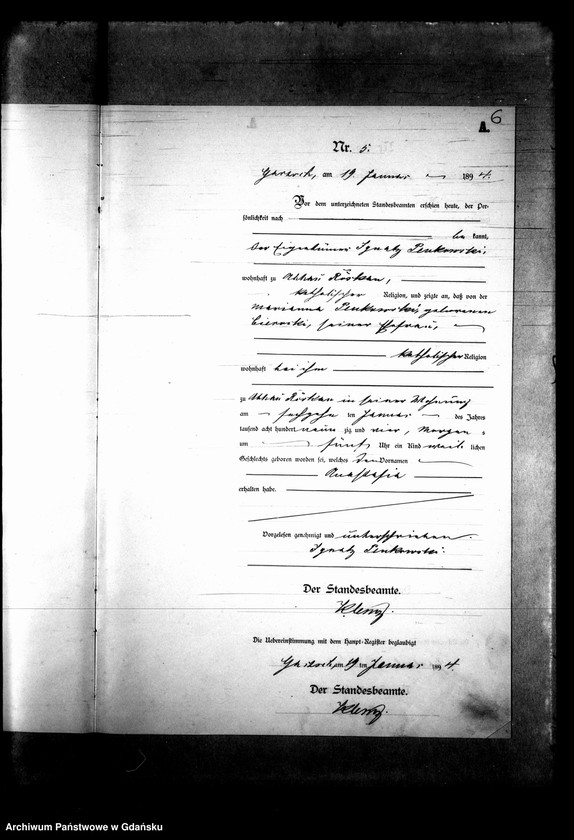 6
A.
Nr. 5.
Gararch, am 19. Januar 1894.
Vor dem unterzeichneten Standesbeamten erschien heute, der Per-
sönlichkeit nach
be kannt,
der Eigenthümer Ignatz Penkowski,
wohnhaft zu
katholischer Religion, und zeigte an, daß von der
Marianna Penkowski, geborenen
seiner Ehefrau,
katholischer Religion
wohnhaft bei ihm
zu in seiner Wohnung
am sechzehn ten Januar des Jahres
tausend acht hundert neun zig und vier, Morgen s
um fünf Uhr ein Kind weib lichen
Geschlechts geboren worden sei, welches den Vornamen
Anastasia
erhalten habe.
Vorgelesen, genehmigt und unterschrieben.
Ignatz Penkowski.
Der Standesbeamte.
Klemz.
Die Uebereinstimmung mit dem Haupt-Register beglaubigt
am 19 ten Januar 1894.
Der Standesbeamte.
Klemz.
Archiwum Państwowe w Gdańsku